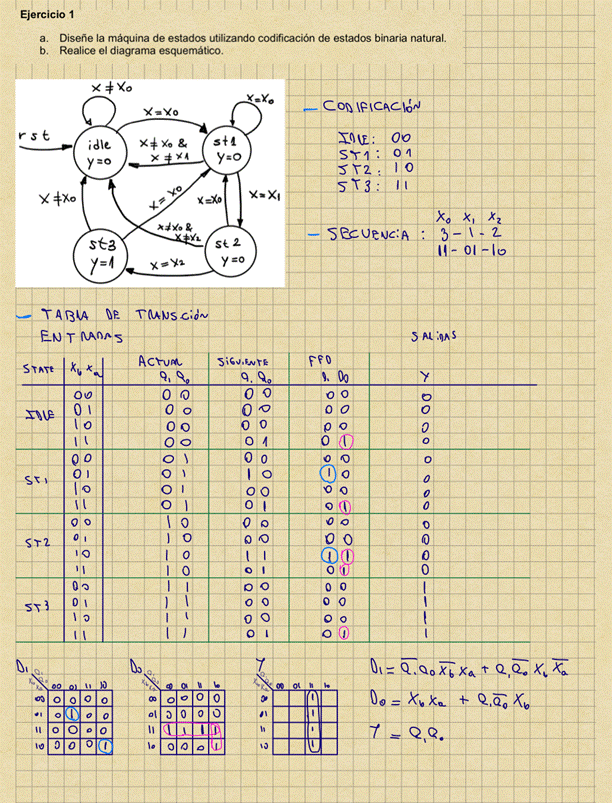 Ejercicio 1
a. Diseñe la máquina de estados utilizando codificación de estados binaria natural.
b. Realice el diagrama esquemático.
x ≠ x0
x = x0
x = x0
rst
idle
y=0
x ≠ x0 &
x ≠ x1
st1
y=0
x ≠ x0
x = x0
x = x0
x = x1
x ≠ x0 &
x ≠ x2
st3
y=1
st2
y=0
x = x2
— CODIFICACIÓN
IDLE: 00
ST1: 01
ST2: 10
ST3: 11
X0 X1 X2
— SECUENCIA : 3 - 1 - 2
11 - 01 - 10
— TABLA DE TRANSCIÓN
ENTRADAS SALIDAS
STATE Xb Xa ACTUAL SIGUIENTE FFD
Q1 Q0 Q1 Q0 D1 D0 Y
00 00 00 00 0
IDLE 01 00 00 00 0
10 00 00 00 0
11 00 01 01 0
00 01 00 00 0
ST1 01 01 10 10 0
10 01 00 00 0
11 01 01 01 0
00 10 00 00 0
ST2 01 10 00 00 0
10 10 11 11 0
11 10 01 01 0
00 11 00 00 1
ST3 01 11 00 00 1
10 11 00 00 1
11 11 01 01 1
D1 Q1Q0 XbXa 00 01 11 10
00 0 0 0 0
01 0 1 0 0
11 0 0 0 0
10 0 0 0 1
D0 Q1Q0 XbXa 00 01 11 10
00 0 0 0 0
01 0 0 0 0
11 1 1 1 1
10 0 0 0 1
Y 00 01 11 10
00 1
01 1
11 1
10 1
D1 = Q̅1 Q0 X̅b Xa + Q1 Q̅0 Xb X̅a
D0 = Xb Xa + Q1 Q̅0 Xb
Y = Q1 Q0